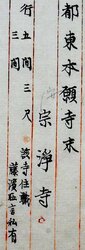 都東本願寺末
宗淨寺
行五間三尺
三間
該寺住職
藤濱私言私有